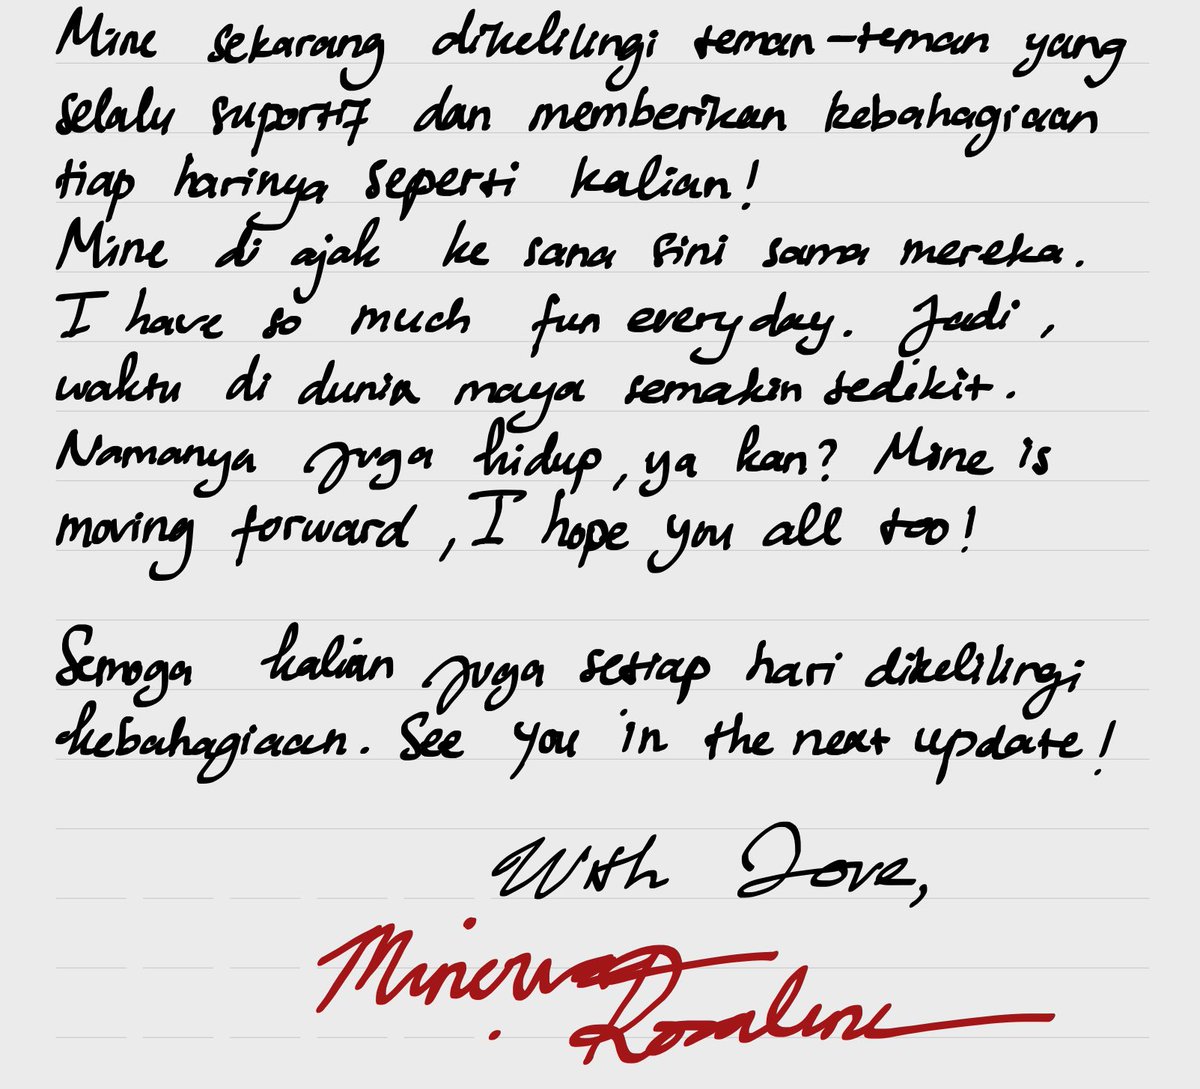 Mine sekarang dikelilingi teman-teman yang
selalu suportif dan memberikan kebahagiaan
tiap harinya seperti kalian!
Mine di ajak ke sana sini sama mereka.
I have so much fun everyday. Jadi,
waktu di dunia maya semakin sedikit.
Namanya juga hidup, ya kan? Mine is
moving forward, I hope you all too!
Semoga kalian juga setiap hari dikelilingi
kebahagiaan. See you in the next update!
With Love,
Minerva
Rosaline